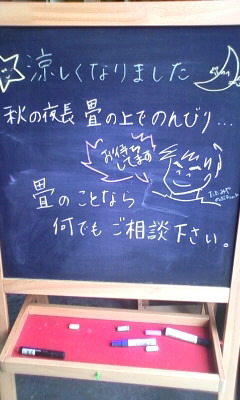 涼しくなりました
秋の夜長 畳の上でのんびり…
お待ち
してます
畳のことなら
何でもご相談下さい。